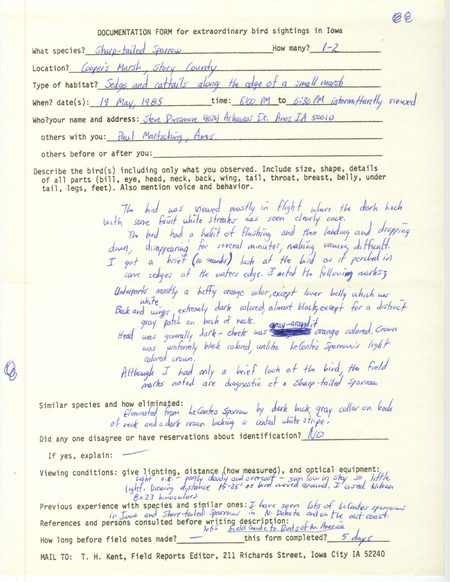 DOCUMENTATION FORM for extraordinary bird sightings in Iowa
What species? Sharp-tailed Sparrow How many? 1-2
Location? Cooper's Marsh, Story County
Type of habitat? Sedges and cattails along the edge of a small marsh
When? date(s): 19 May, 1985 time: 6:00 PM to 6:30 PM intermittently viewed
Who? your name and address: Steve Dinsmore 4024 Arkansas Dr. Ames IA 50010
others with you: Paul Martsching, Ames
others before or after you:
Describe the bird(s) including only what you observed. Include size, shape, details
of all parts (bill, eye, head, neck, back, wing, tail, throat, breast, belly, under
tail, legs, feet). Also mention voice and behavior.
The bird was viewed mostly in flight where the dark back
with some faint white streaks was seen clearly once.
The bird had a habit of flushing and then landing and dropping
down, disappearing for several minutes, making viewing difficult.
I got a brief (10 seconds) look at the bird as it perched in
some sedges at the waters edge. I noted the following marks;
Underparts mostly a buffy orange color, except lower belly which was
white.
Back and wings extremely dark colored, almost black, except for a distinct
gray patch on back of neck.
Head was generally dark - cheek was gray-around it orange colored. Crown
was uniformly black colored, unlike LeConte's Sparrow's light
colored crown.
Although I had only a brief look at the bird, the field
marks noted are diagnostic of a sharp-tailed sparrow.
Similar species and how eliminated:
Eliminated from LeConte's Sparrow by dark back, gray collar on back
of neck and a dark crown lacking a central white stripe.
Did any one disagree or have reservations about identification? NO
If yes, explain: —
Viewing conditions: give lighting, distance (how measured), and optical equipment:
Light o.k. - partly cloudy and overcast - sun low in sky so little
light. Viewing distance 15-25' as bird moved around. I used
8x23 binoculars
Previous experience with species and similar ones: I have seen lots of LeConte's sparrows
in Iowa and Sharp-tailed Sparrows in N. Dakota and on the east coast.
References and persons consulted before writing description:
NGS Field Guide to Birds of N. America
How long before field notes made? — this form completed? 5 days
MAIL TO: T. H. Kent, Field Reports Editor, 211 Richards Street, Iowa City IA 52240